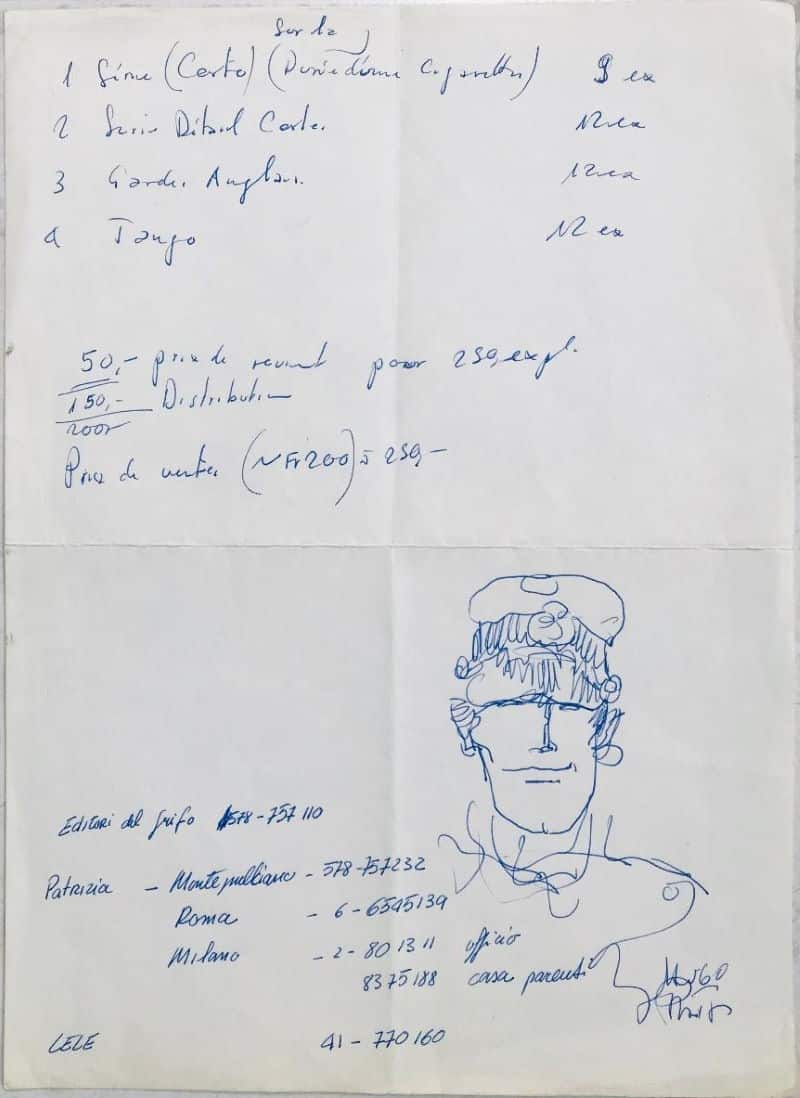 Sur la
1 Série (Corto) ( Cigarettes) 9 ex
2 Serie Corto. 12 ex
3 Anglais. 12 ex
4 Tango 12 ex
50,- prix de revient pour 250, expl.
150,- Distribution
200
Prix de vente (~ Fr 200) = 250,-
Editori del Grifo 578-757 110
Patrizia - Montepulciano - 578-757232
Roma - 6-6545139
Milano - 2-801311 ufficio
8375188 casa parenti
Hugo
Pratt
LELE 41-770160